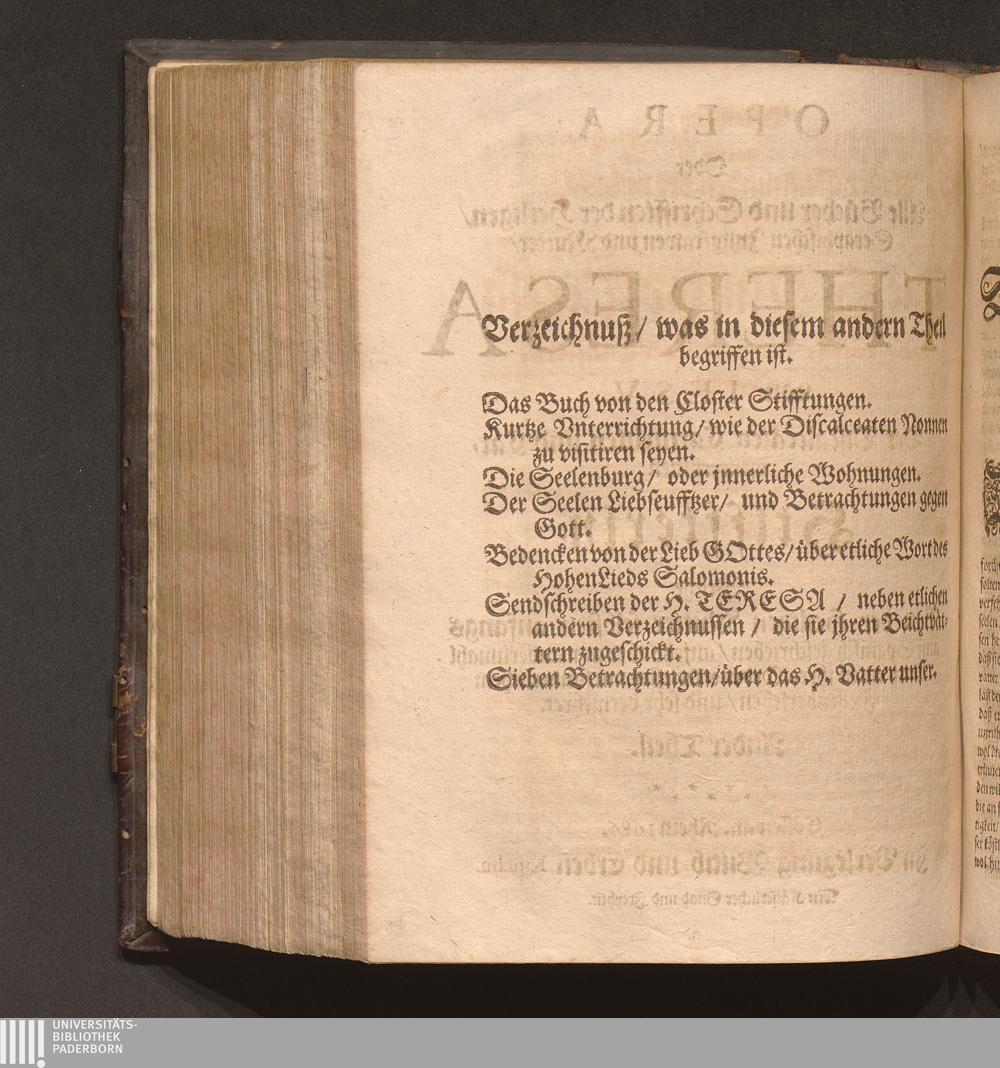 Verzeichnuß/ was in diesem andern Theil
begriffen ist.
Das Buch von den Closter Stifftungen.
Kurtze Vnterrichtung/ wie der Discalceaten Nonnen
zu visitiren seyen.
Die Seelenburg/ oder jnnerliche Wohnungen.
Der Seelen Liebseufftzer/ und Betrachtungen gegen
Gott.
Bedencken von der Lieb GOttes/ über etliche Wort des
HohenLieds Salomonis.
Sendschreiben der H. TERESA / neben etlichen
andern Verzeichnussen / die sie jhren Beichtvät-
tern zugeschickt.
Sieben Betrachtungen/ über das H. Vatter unser.
UNIVERSITÄTS-
BIBLIOTHEK
PADERBORN